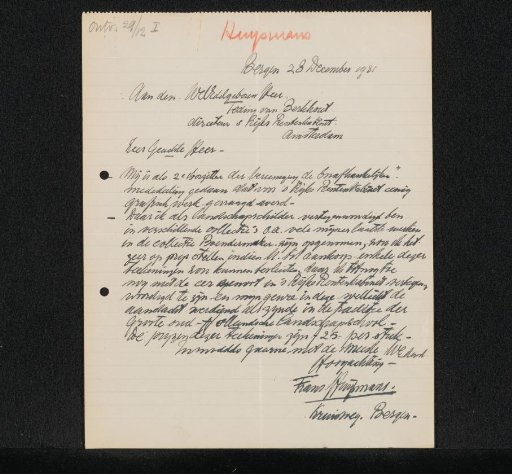 Ontv. 29/12 I
Huysmans
Bergen 28 December 1931
Aan den WelEdelgeboren Heer
Teding van Berkhout
directeur 's Rijks Prentenkabinet
Amsterdam
Zeer Geachte Heer -
Mij is als 2e Voorzitter der Vereeniging de Onafhankelijken
mededeeling gedaan dat om 's Rijks Prentenkabinet eenig
grafisch werk gevraagd werd -
Daar ik als landschapschilder vertegenwoordigd ben
in verschillende collectie's o.a. vele mijner laatste werken
in de collectie Boendermaker zijn opgenomen, zou ik het
zeer op prijs stellen indien U tot aankoop enkele dezer
teekeningen zou kunnen besluiten, daar
mij met de eer in 's Rijks Prentenkabinet
te zijn en mijn in deze wellicht de
aandacht verdiend als zijnde in de traditie der
Groote oud-Hollandsche landschapschool -
De prijzen dezer teekeningen zijn f 25 per stuk -
Inmiddels gaarne met de meeste
Hoogachting -
Frans Huysmans.
Kruisweg. Bergen -